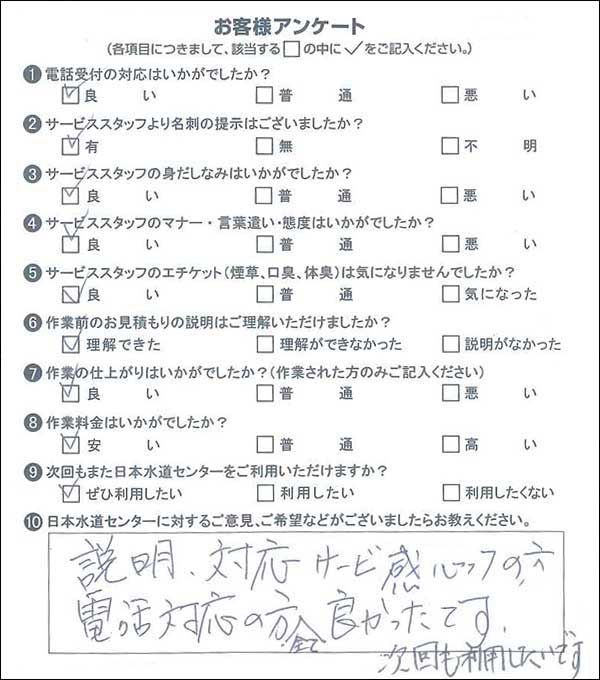 お客様アンケート
(各項目につきまして、該当する□の中に✓をご記入ください。)
❶ 電話受付の対応はいかがでしたか?
☑良い □普通 □悪い
❷ サービススタッフより名刺の提示はございましたか?
☑有 □無 □不明
❸ サービススタッフの身だしなみはいかがでしたか?
☑良い □普通 □悪い
❹ サービススタッフのマナー・言葉遣い・態度はいかがでしたか?
☑良い □普通 □悪い
❺ サービススタッフのエチケット(煙草、口臭、体臭)は気になりませんでしたか?
☑良い □普通 □気になった
❻ 作業前のお見積もりの説明はご理解いただけましたか?
☑理解できた □理解ができなかった □説明がなかった
❼ 作業の仕上がりはいかがでしたか?(作業された方のみご記入ください)
☑良い □普通 □悪い
❽ 作業料金はいかがでしたか?
☑安い □普通 □高い
❾ 次回もまた日本水道センターをご利用いただけますか?
☑ぜひ利用したい □利用したい □利用したくない
❿ 日本水道センターに対するご意見、ご希望などがございましたらお教えください。
説明、対応 サービ
電話対応の方全て良かったです。
次回も利用したいです